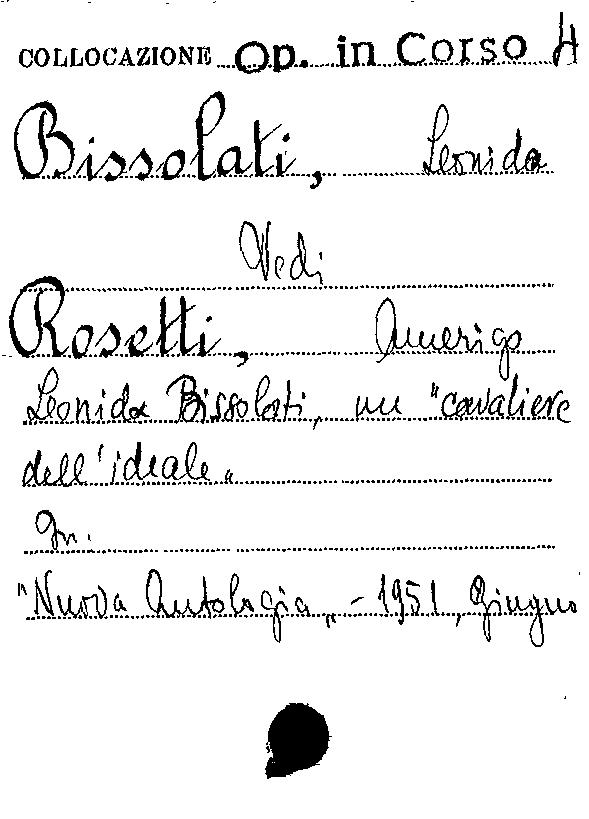 COLLOCAZIONE Op. in Corso H
Bissolati, Leonida
Vedi
Rosetti, Amerigo
Leonida Bissolati, un "cavaliere
dell'ideale„
In.
"Nuova Antologia„ - 1951, Giugno